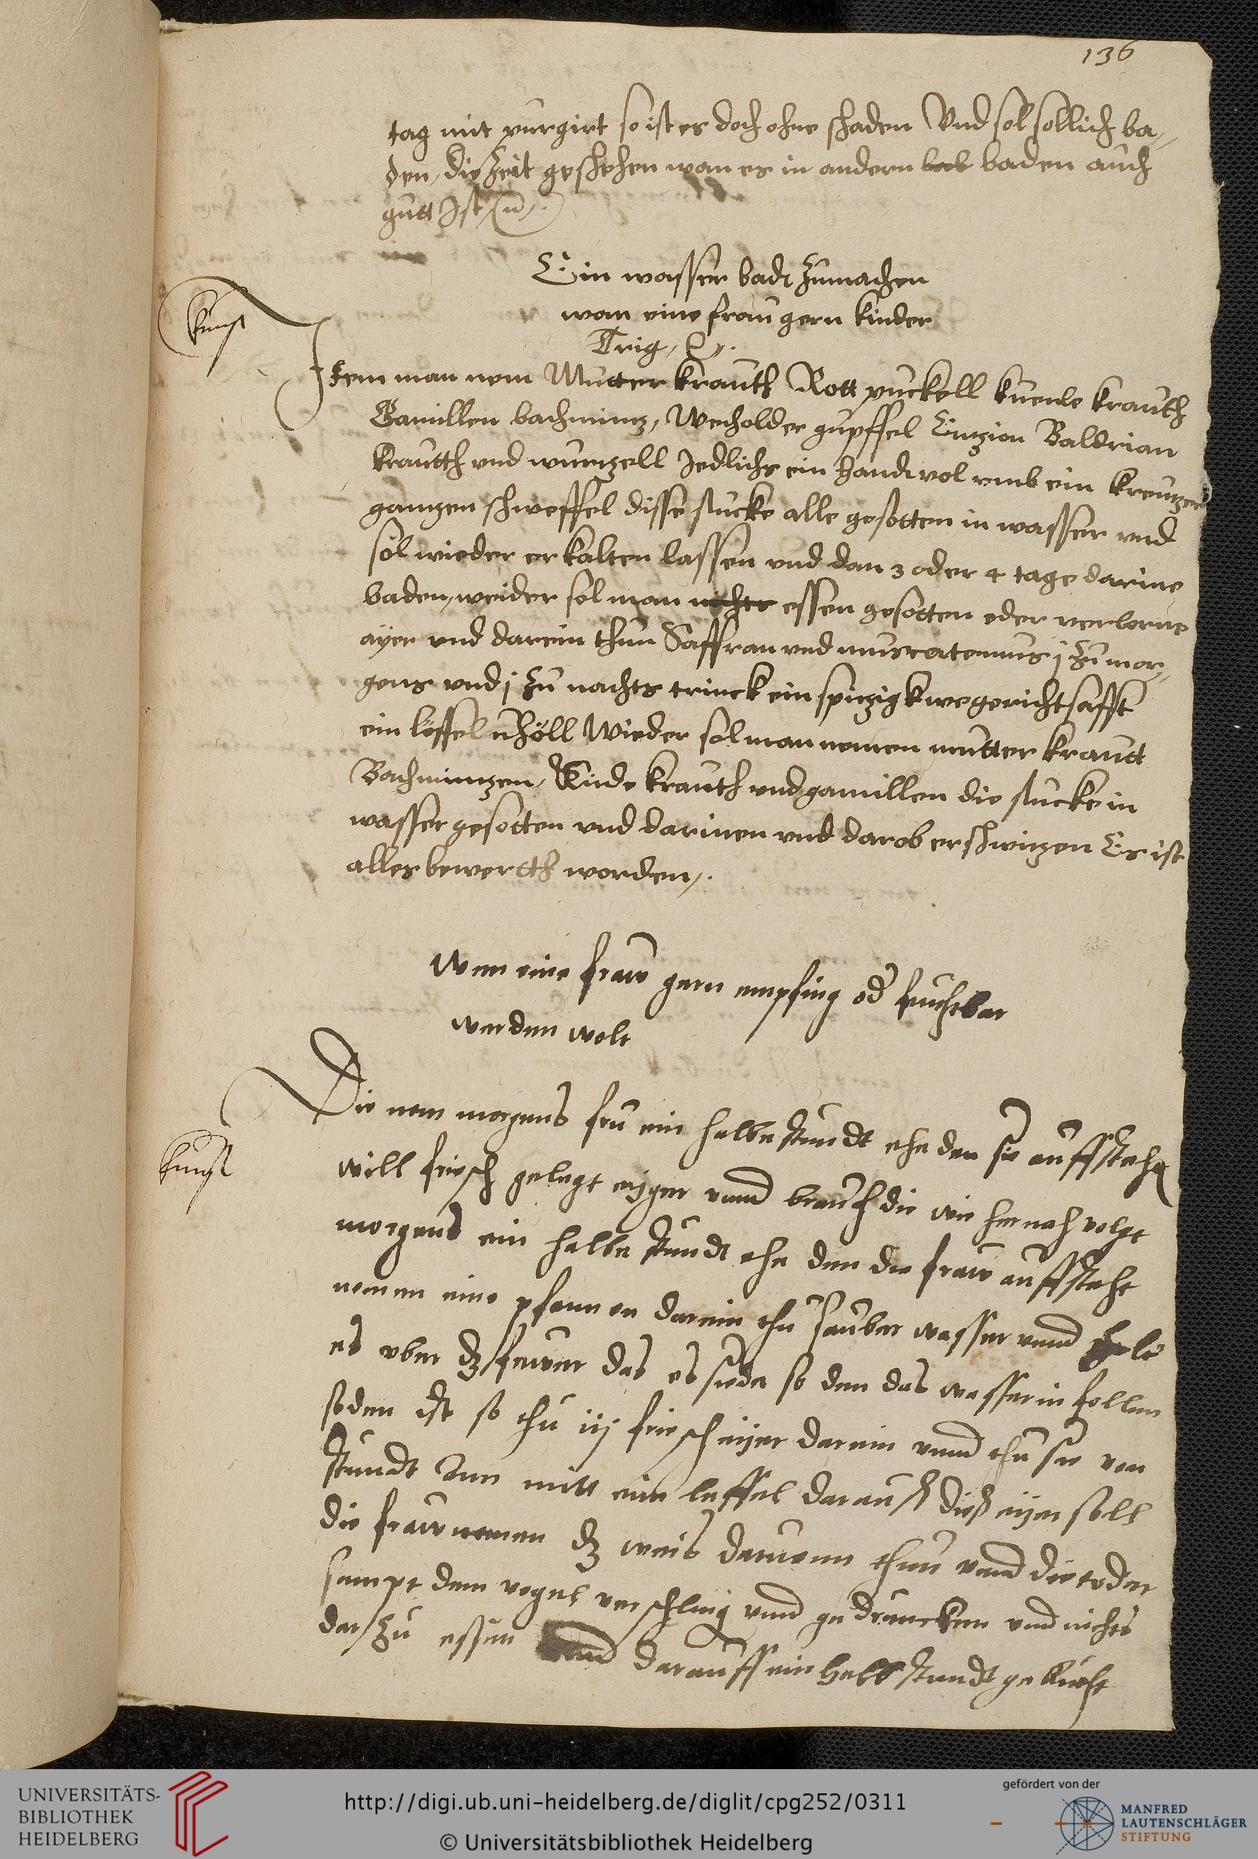 136
tag mit purgirt so ist es doch ohne schaden Vnd sol sollich ba-
den, die Zeit geschehen wan es in andern bab baden auch
gutt Ist
Ein wasser badt Zumachen
wan eine frau gern kinder
Trig
kunst
Item man nem Mutter krauth Rott puckell kuenle krauth
Camillen bachmintz, Wecholder gupffel Entzion Baldrian
krautth vnd wurtzell Jedlichs ein handt vol vmb ein kreutzer
gantzen schweffel disse stucke alle gesotten in wasser vnd
sol wieder erkalten lassen vnd dan 3 oder 4 tage darine
baden, weider sol man nichts essen gesotten oder verlorne
ayer vnd darein thun Saffran vnd muscatennus j Zu mor-
gens vnd j Zu nachts trinck ein spitzig wegericht safft
ein löffel Wieder sol man nemen mutter krautt
Bachmintzen, Rude krauth vnd gamillen die stucke in
wasser gesotten vnd darinen vnd darob erschwitzen Es ist
alles bewertth worden,.
Wen eine fraw gern empfing od fruchtbar
werden wolt
kunst
Die nem morgens fru ein halbe stundt ehe den sie auffstehe
will frisch gelegt eyger vnnd brauch die wie hernach volgt
morgens ein halbe stundt ehe den die fraw auffsteht
nemen eine pfannen darein thu sauber wasser vnnd
es vber dz fewer das es siede so den das wasser in follem
soden ist so thu iij frisch eyer darein vnnd thu sie von
stundt ann mitt eim leffel darauß dieß eyer soll
die fraw nemen dz weis daruonn thun vnnd die toder
sampt dem vogel verschling vnnd gedruncken vnd nichts
darzu essen vnnd darauff ein halb stundt geknicht
UNIVERSITÄTS-
BIBLIOTHEK
HEIDELBERG
http://digi.ub.uni-heidelberg.de/diglit/cpg252/0311
© Universitätsbibliothek Heidelberg
gefördert von der
MANFRED
LAUTENSCHLÄGER
STIFTUNG